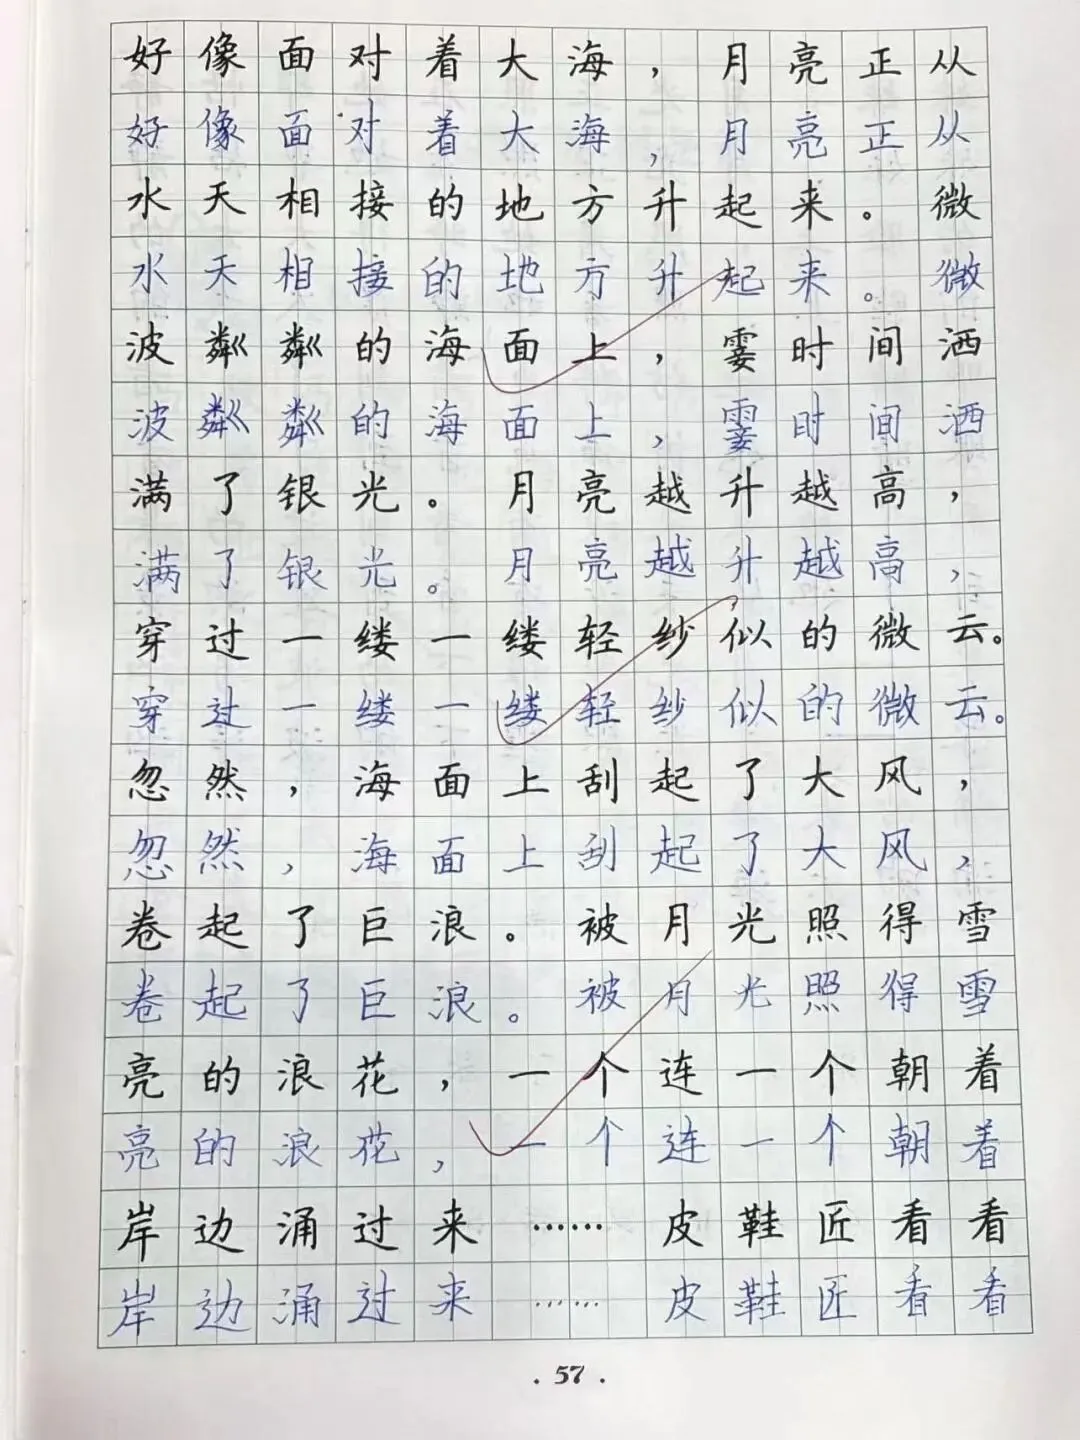 好像面对着大海，月亮正从
好像面对着大海，月亮正从
水天相接的地方升起来。微
水天相接的地方升起来。微
波粼粼的海面上，霎时间洒
波粼粼的海面上，霎时间洒
满了银光。月亮越升越高，
满了银光。月亮越升越高，
穿过一缕一缕轻纱似的微云。
穿过一缕一缕轻纱似的微云。
忽然，海面上刮起了大风，
忽然，海面上刮起了大风，
卷起了巨浪。被月光照得雪
卷起了巨浪。被月光照得雪
亮的浪花，一个连一个朝着
亮的浪花，一个连一个朝着
岸边涌过来……皮鞋匠看看
岸边涌过来……皮鞋匠看看
·57·